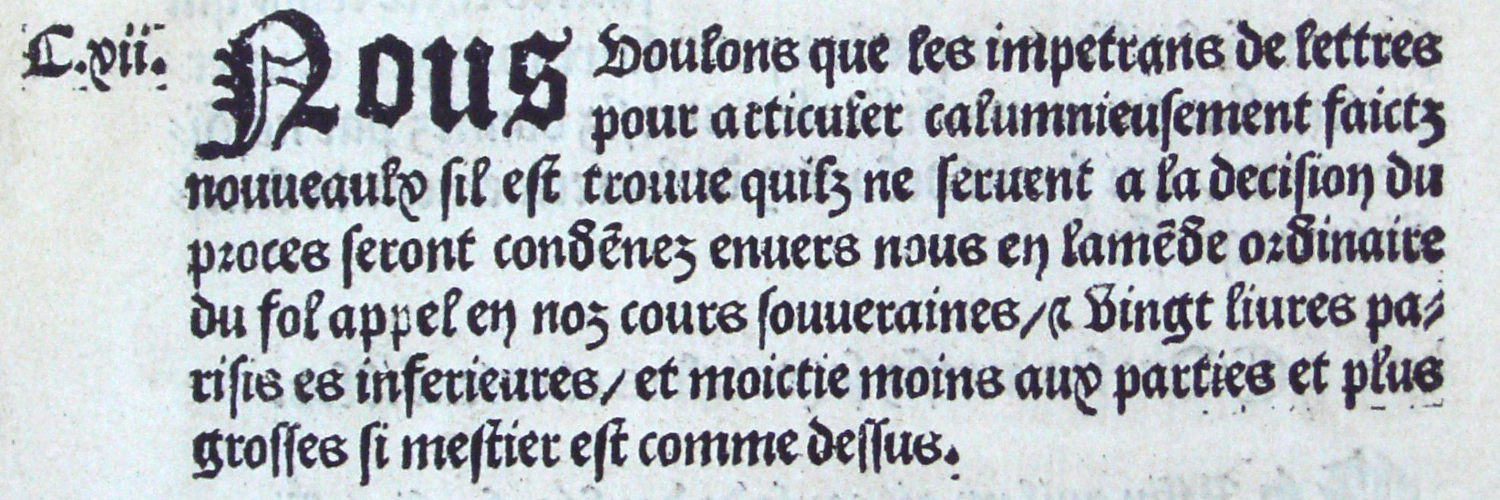 C.xvii. Nous Voulons que les impetrans de lettres
pour articuler calumnieusement faictz
nouueaulx sil est trouue quilz ne seruent a la decision du
proces seront condẽnez enuers nous en lamẽde ordinaire
du fol appel en noz cours souueraines/⁊ Vingt liures pa⸗
risis es inferieures/ et moictie moins aux parties et plus
grosses si mestier est comme dessus.